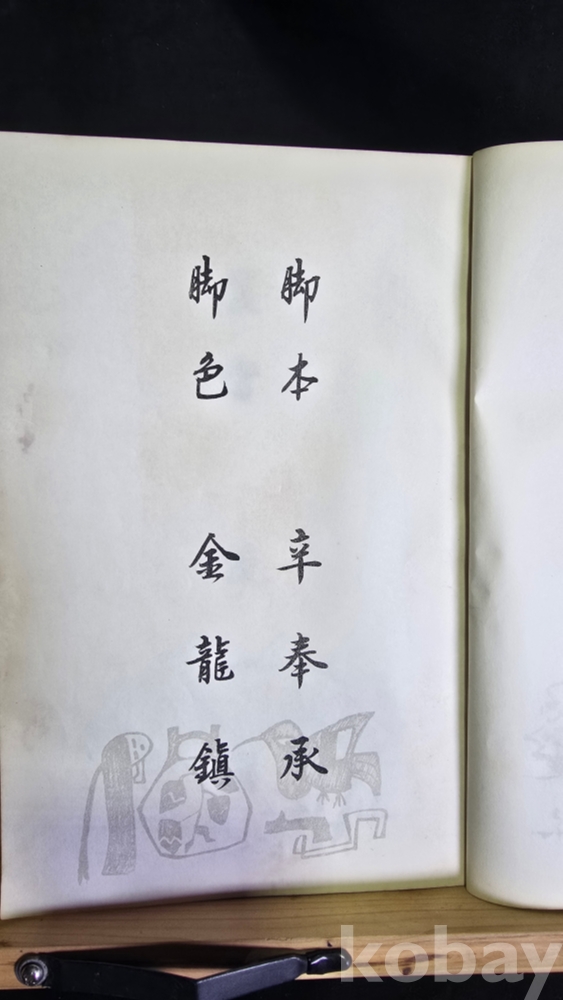 脚本 辛奉承
脚色 金龍鎭
kobay